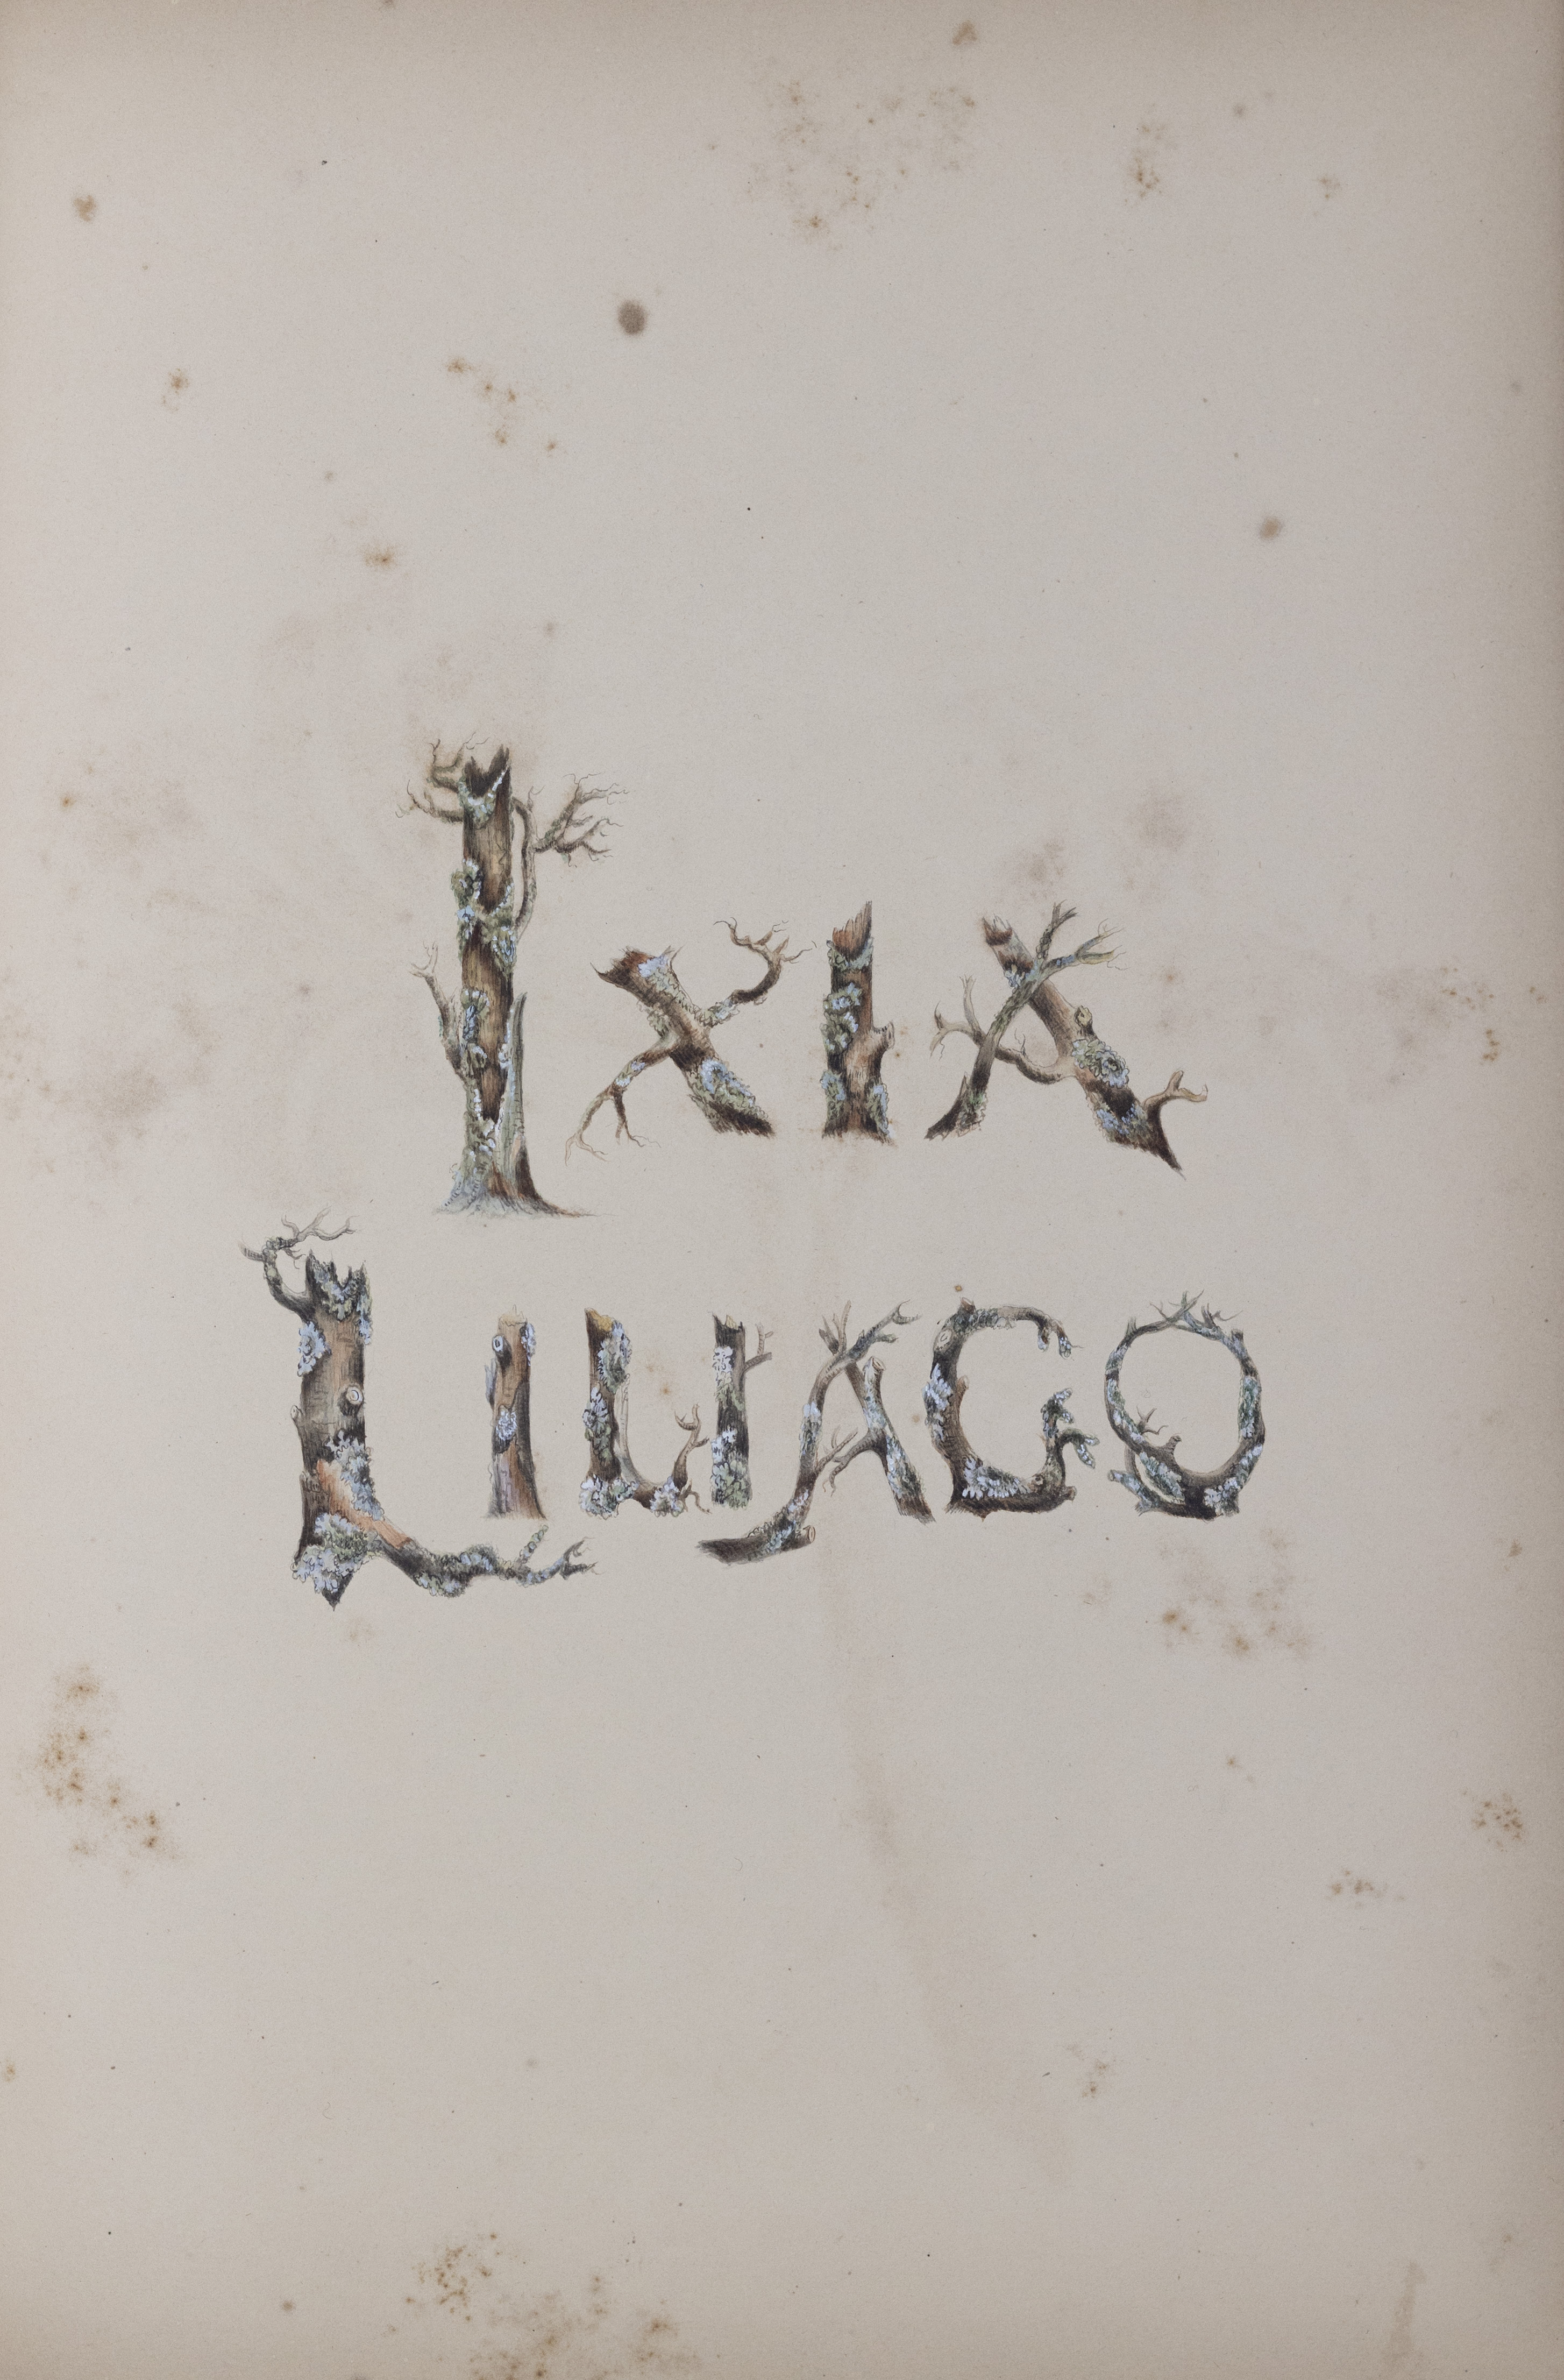 IXIA
LILIAGO